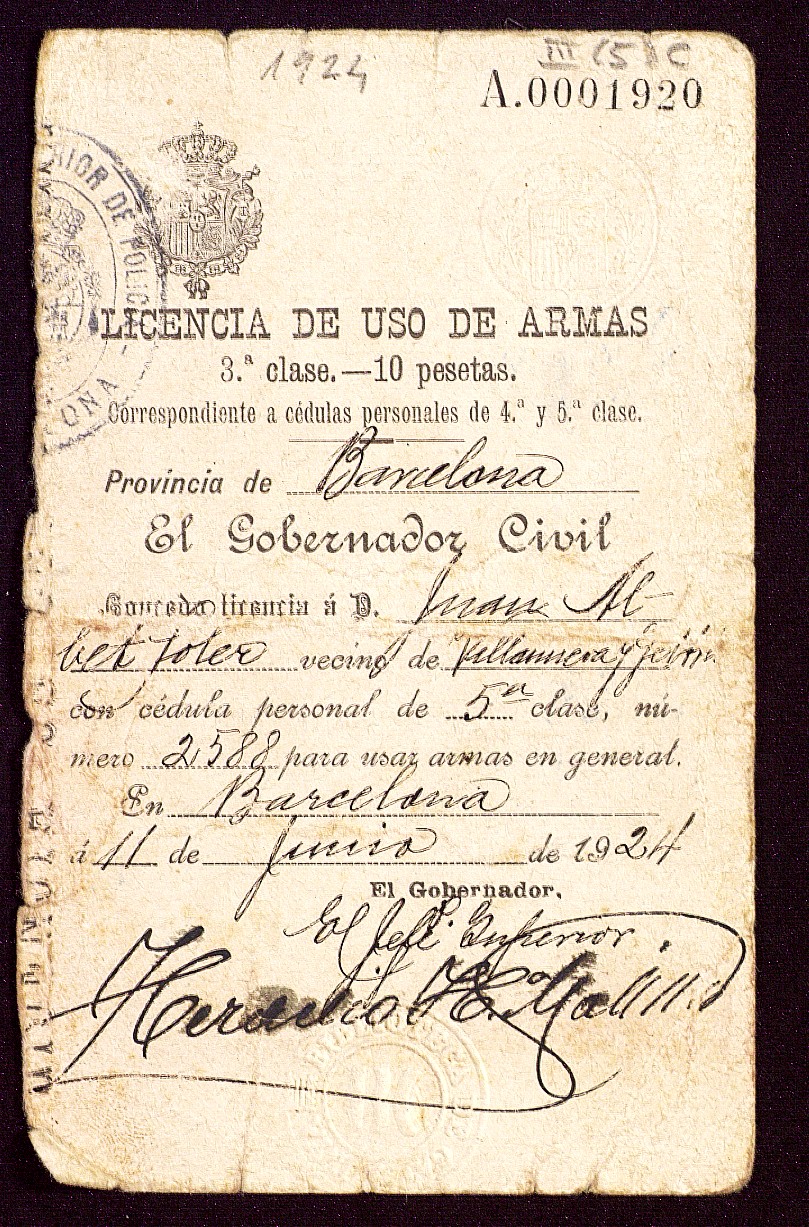 1924
III (5) C
A.0001920
RIOR DE POLIC
ONA
LICENCIA DE USO DE ARMAS
3.ª clase.—10 pesetas.
Correspondiente a cédulas personales de 4.ª y 5.ª clase.
Provincia de Barcelona
El Gobernador Civil
Concedo licencia á D. Juan Al-
bet Soler vecino de Villanueva y Geltrú
con cédula personal de 5ª clase, nú-
mero 2,588 para usar armas en general.
En Barcelona
á 11 de Junio de 1924
El Gobernador,
El Jefe Superior